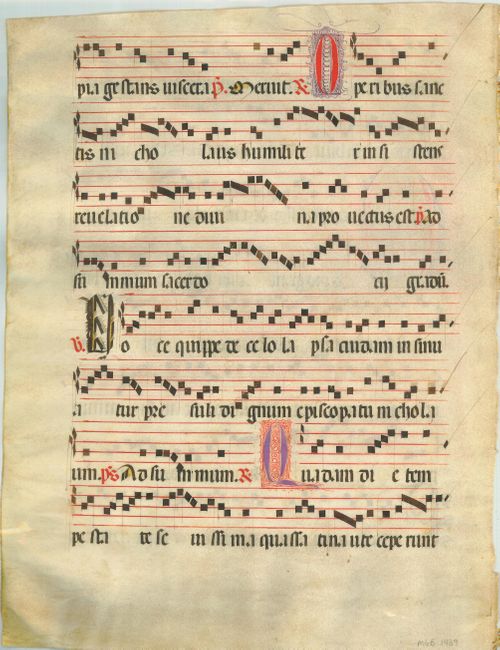 pia gestans uiscera. P. Meruit. R. O peribus sanc
tis ni cho laus humili te r in si stens
reuelatio ne diui na pro uectus est. P. Ad
su mmum sacerdo cii gradum.
V. V o ce quippe de ce lo la psa cuidam in sinu
a tur pre suli di gnum episcopatu nichola
um. ps Ad su mmum. R. Q uadam di e tem
pe sta te se ui ssi ma qua ssa ti na ute cepe runt
M66-1439